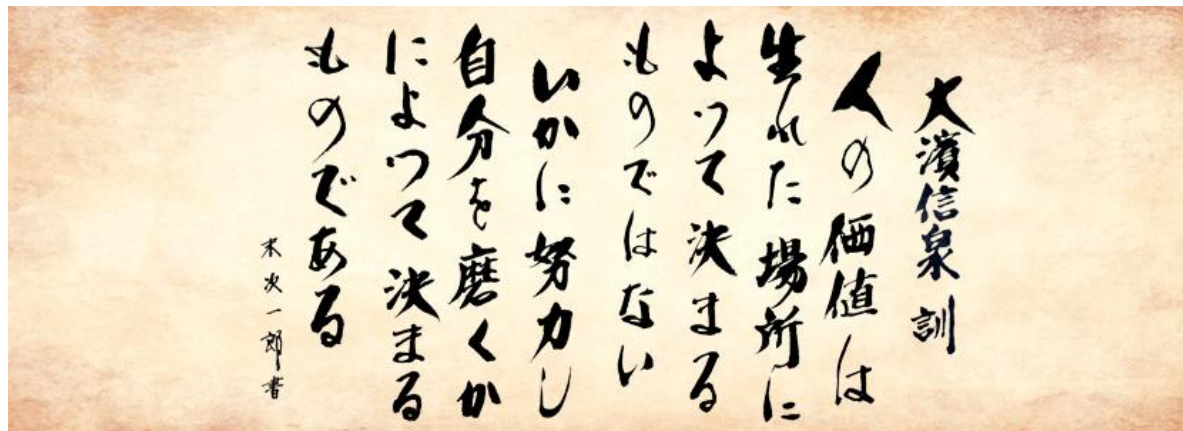 大濱信泉 訓
人の価値は
生れた場所に
よって決まる
ものではない
いかに努力し
自分を磨くか
によって決まる
ものである
末次一郎書